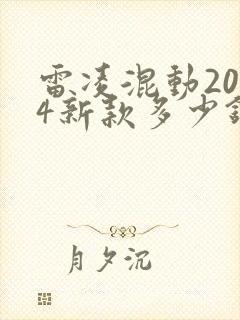 雷凌混動20
4新款多少
月夕沉